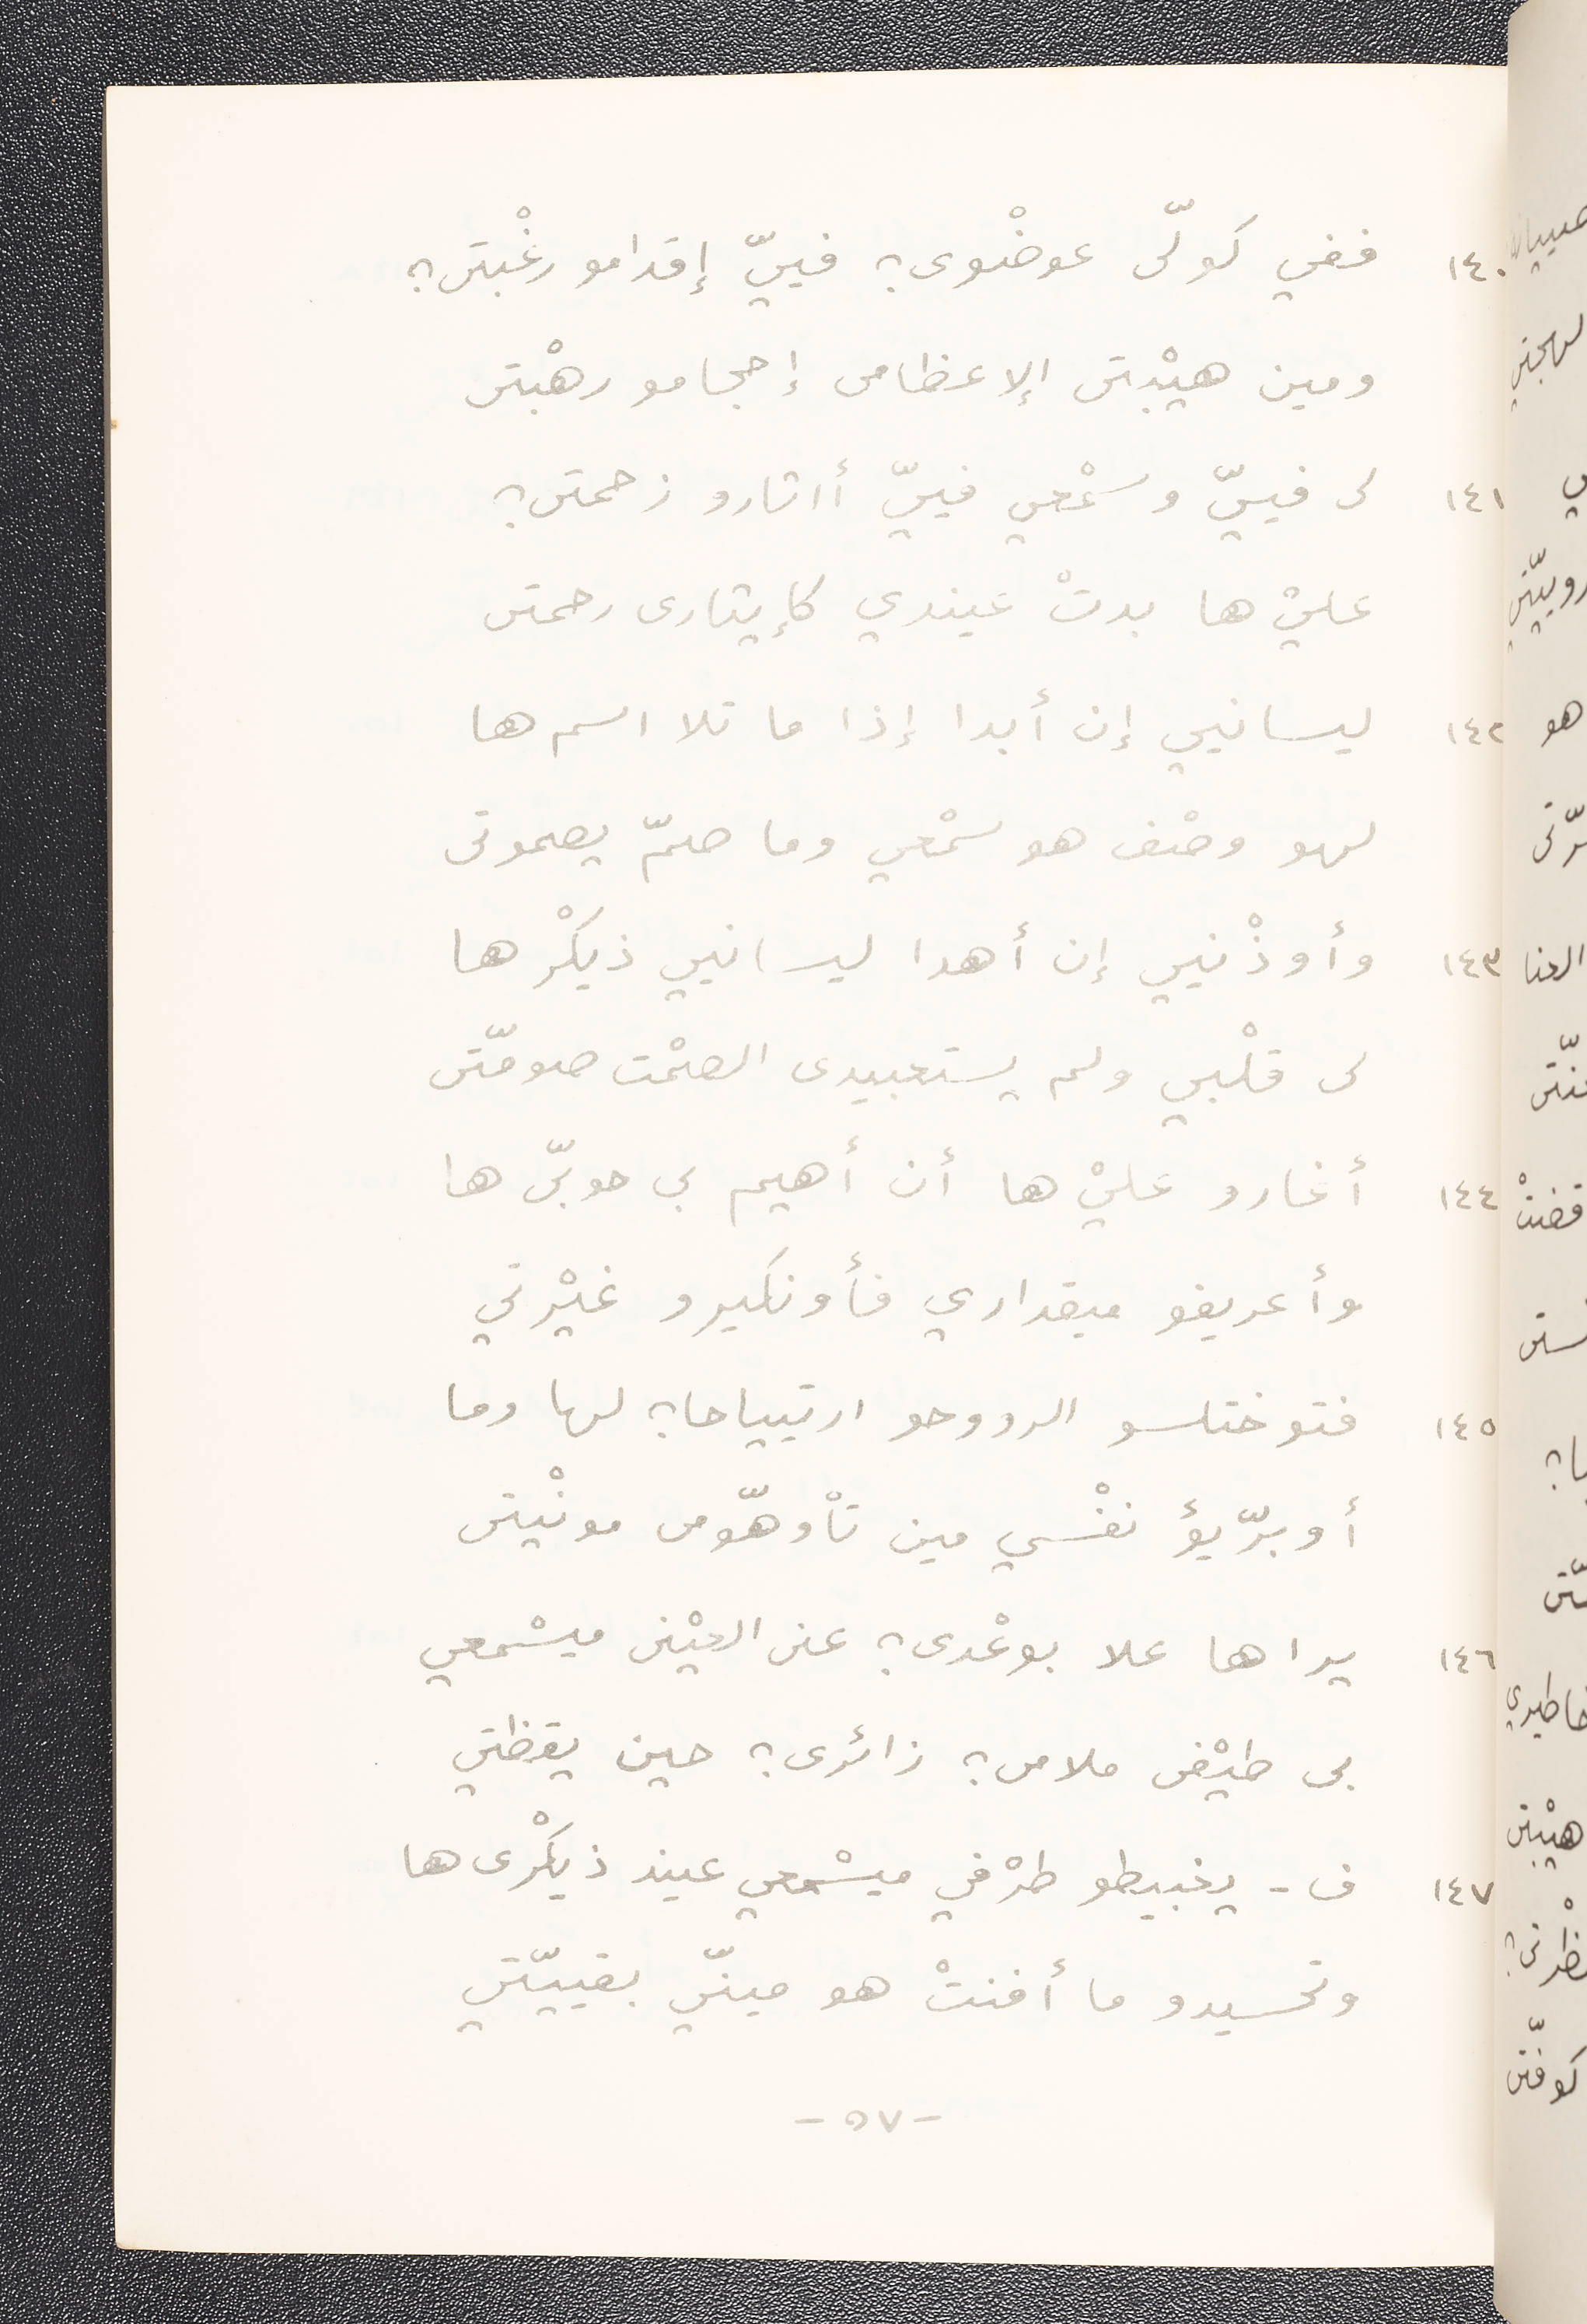 ١٤٠ ففي كولّى عوضْوى؟ فييّ إقدامو رغْبتى؟
ومين هيْبتى الإعظامى إحجامو رهْبتى
١٤١ لى فييّ وسمْعي فييّ أاثارو زحمتى؟
عليْ ها بدتْ عيندي كإيثارى رحمتى
١٤٢ ليسانيي إن أبدا إذا ما تلا اسم ها
لهو وصْف هو سمْعي وما صممّ يصموتى
١٤٣ وأوذْنيي إن أهدا ليسانيي ذيكْر ها
لى قلْبي ولم يستعبيدى الصمْت صومّتى
١٤٤ أغارو عليْ ها أن أهيم بى حوبّى ها
وأعريفو ميقداري فأونكيرو غيْرتي
١٤٥ فتوختلسو الرووحو ارتيياحا؟ لها وما
أوبرّيؤ نفْسي مين تأوهّومى مونْيتى
١٤٦ يراها علا بوعْدى؟ عنى العيْنى ميسْمعي
بى طيْفى ملامى؟ زائرى؟ حين يقظتي
١٤٧ فى - يغبيطو طرْفي ميسْمعي عيند ذيكْرى ها
وتحسيدو ما أفنتْ هو مينّي بقييّتي
- ٥٧ -